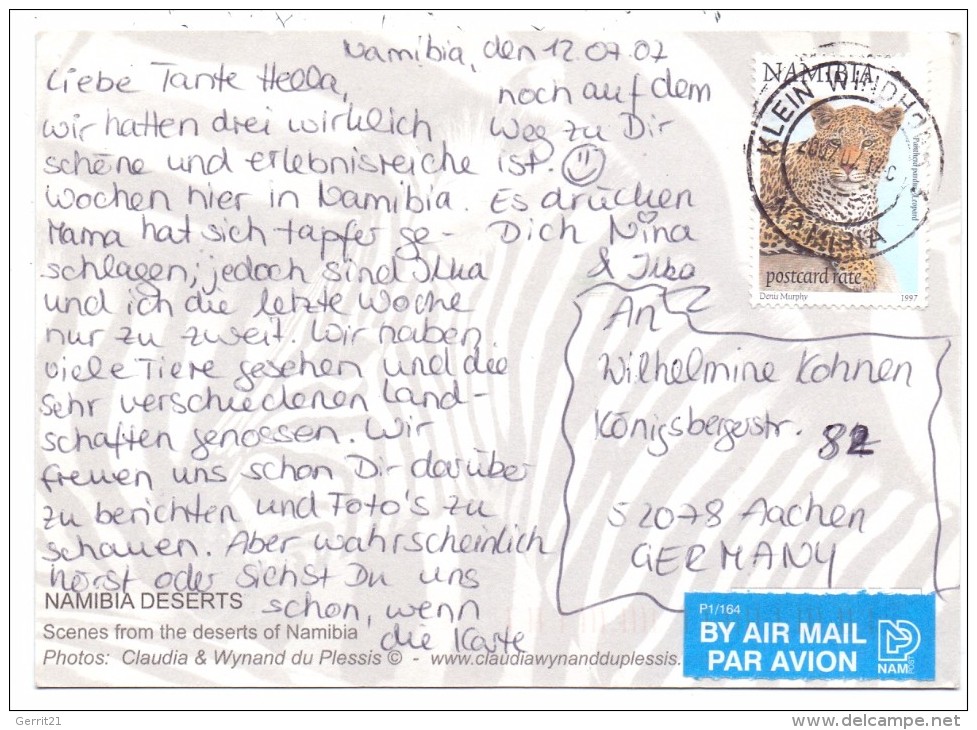 Namibia, den 12.07.07
Liebe Tante Hella,
wir hatten drei wirklich
schöne und erlebnisreiche
Wochen hier in Namibia.
Mama hat sich tapfer ge-
schlagen, jedoch sind Ilka
und ich die letzte Woche
nur zu zweit. Wir haben
viele Tiere gesehen und die
sehr verschiedenen Land-
schaften genossen. Wir
freuen uns schon Dir darüber
zu berichten und Foto's zu
schauen. Aber wahrscheinlich
hörst oder siehst Du uns
schon, wenn
die Karte
noch auf dem
Weg zu Dir
ist. ☺
Es drücken
Dich Nina
& Ilka
NAMIBIA DESERTS
Scenes from the deserts of Namibia
Photos: Claudia & Wynand du Plessis © - www.claudiawynandduplessis.
NAMIBIA
postcard rate
Denis Murphy 1997
KLEIN WINDHO
NAMIBIA
An
Wilhelmine Kohnen
Königsbergerstr. 82
52078 Aachen
GERMANY
P1/164
BY AIR MAIL
PAR AVION
NAMPOST
Gerrit21
www.delcampe.net